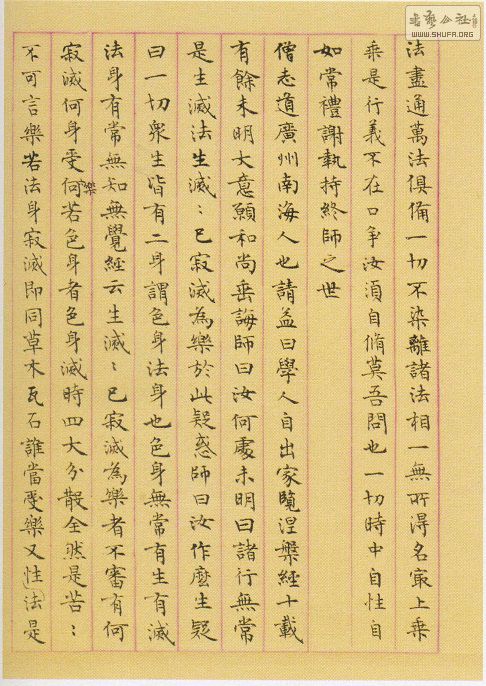 法盡通萬法俱備一切不染離諸法相一無所得名㝡上乗
乗是行義不在口爭汝須自脩莫吾問也一切時中自性自
如常禮謝執持終師之世
僧志道廣州南海人也請益曰學人自出家覽涅槃經十載
有餘未明大意願和尚垂誨師曰汝何處未明曰諸行無常
是生滅法生滅〻已寂滅為樂於此疑惑師曰汝作麼生疑
曰一切衆生皆有二身謂色身法身也色身無常有生有滅
法身有常無知無覺經云生滅〻已寂滅為樂者不審有何
寂滅何身受何樂若色身者色身滅時四大分散全然是苦〻
不可言樂若法身寂滅即同草木瓦石誰當受樂又性法是
书艺公社
WWW.SHUFA.ORG